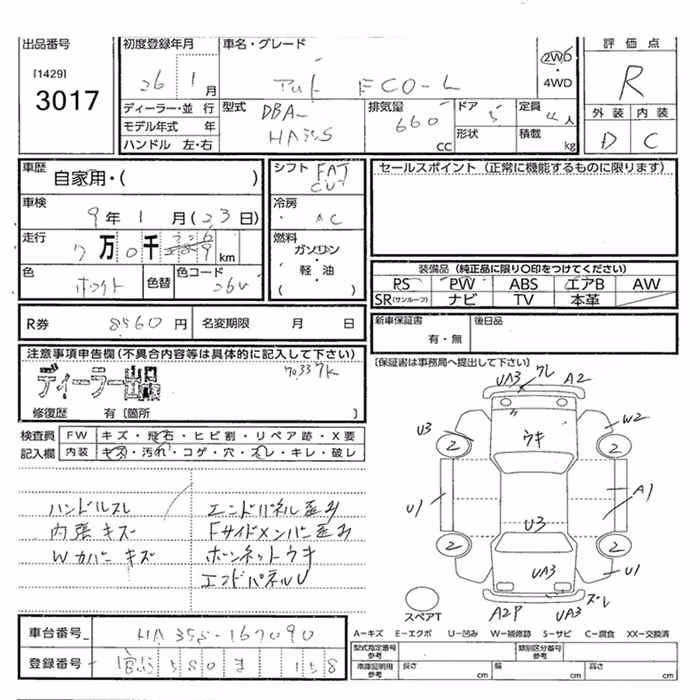 出品番号 [1429] 3017
初度登録年月 26年 1月
車名・グレード ECO-L
2WD ・ 4WD
評価点 R
外装 内装
D C
ディーラー・並行
モデル年式 年
ハンドル 左・右
型式 DBA-HA35S
排気量 660 CC
ドア 5
形状
定員 4人
積載 kg
車歴 自家用・( )
車検 9年 1月 (23日)
走行 7万0千 km
色 ホワイト 色替 色コード 26U
シフト FAT CVT
冷房 AC
燃料 ガソリン・軽油 ( )
セールスポイント (正常に機能するものに限ります)
装備品 (純正品に限り○印をつけてください)
PS PW ABS エアB AW
SR(サンルーフ) ナビ TV 本革
R券 8560円 名変期限 月 日
新車保証書 有・無 後日品
(保証書は事務局へ提出して下さい)
注意事項申告欄(不具合内容等は具体的に記入して下さい)
ディーラー出品
70337K
修復歴 有〔箇所 〕
検査員 FW キズ・飛石・ヒビ割・リペア跡・X要
記入欄 内装 キズ・汚れ・コゲ・穴・ズレ・キレ・破レ
ハンドルスレ エンドパネル歪み
内張キズ Fサイドメンバー歪み
Wカバーキズ ボーンネットウキ
エンドパネルU
UA3 ズレ A2
U3 2 ウキ 2 W2
U1 A1
U3
2 UA3 2 U1
スペアT A2P UA3 ズレ
車台番号 HA35S-167090
登録番号 580 158
A-キズ E-エクボ U-凹み W-補修跡 S-サビ C-腐食 XX-交換済
型式指定番号 参考 類別区分番号 参考
車庫証明用 参考 長さ cm 幅 cm 高さ cm